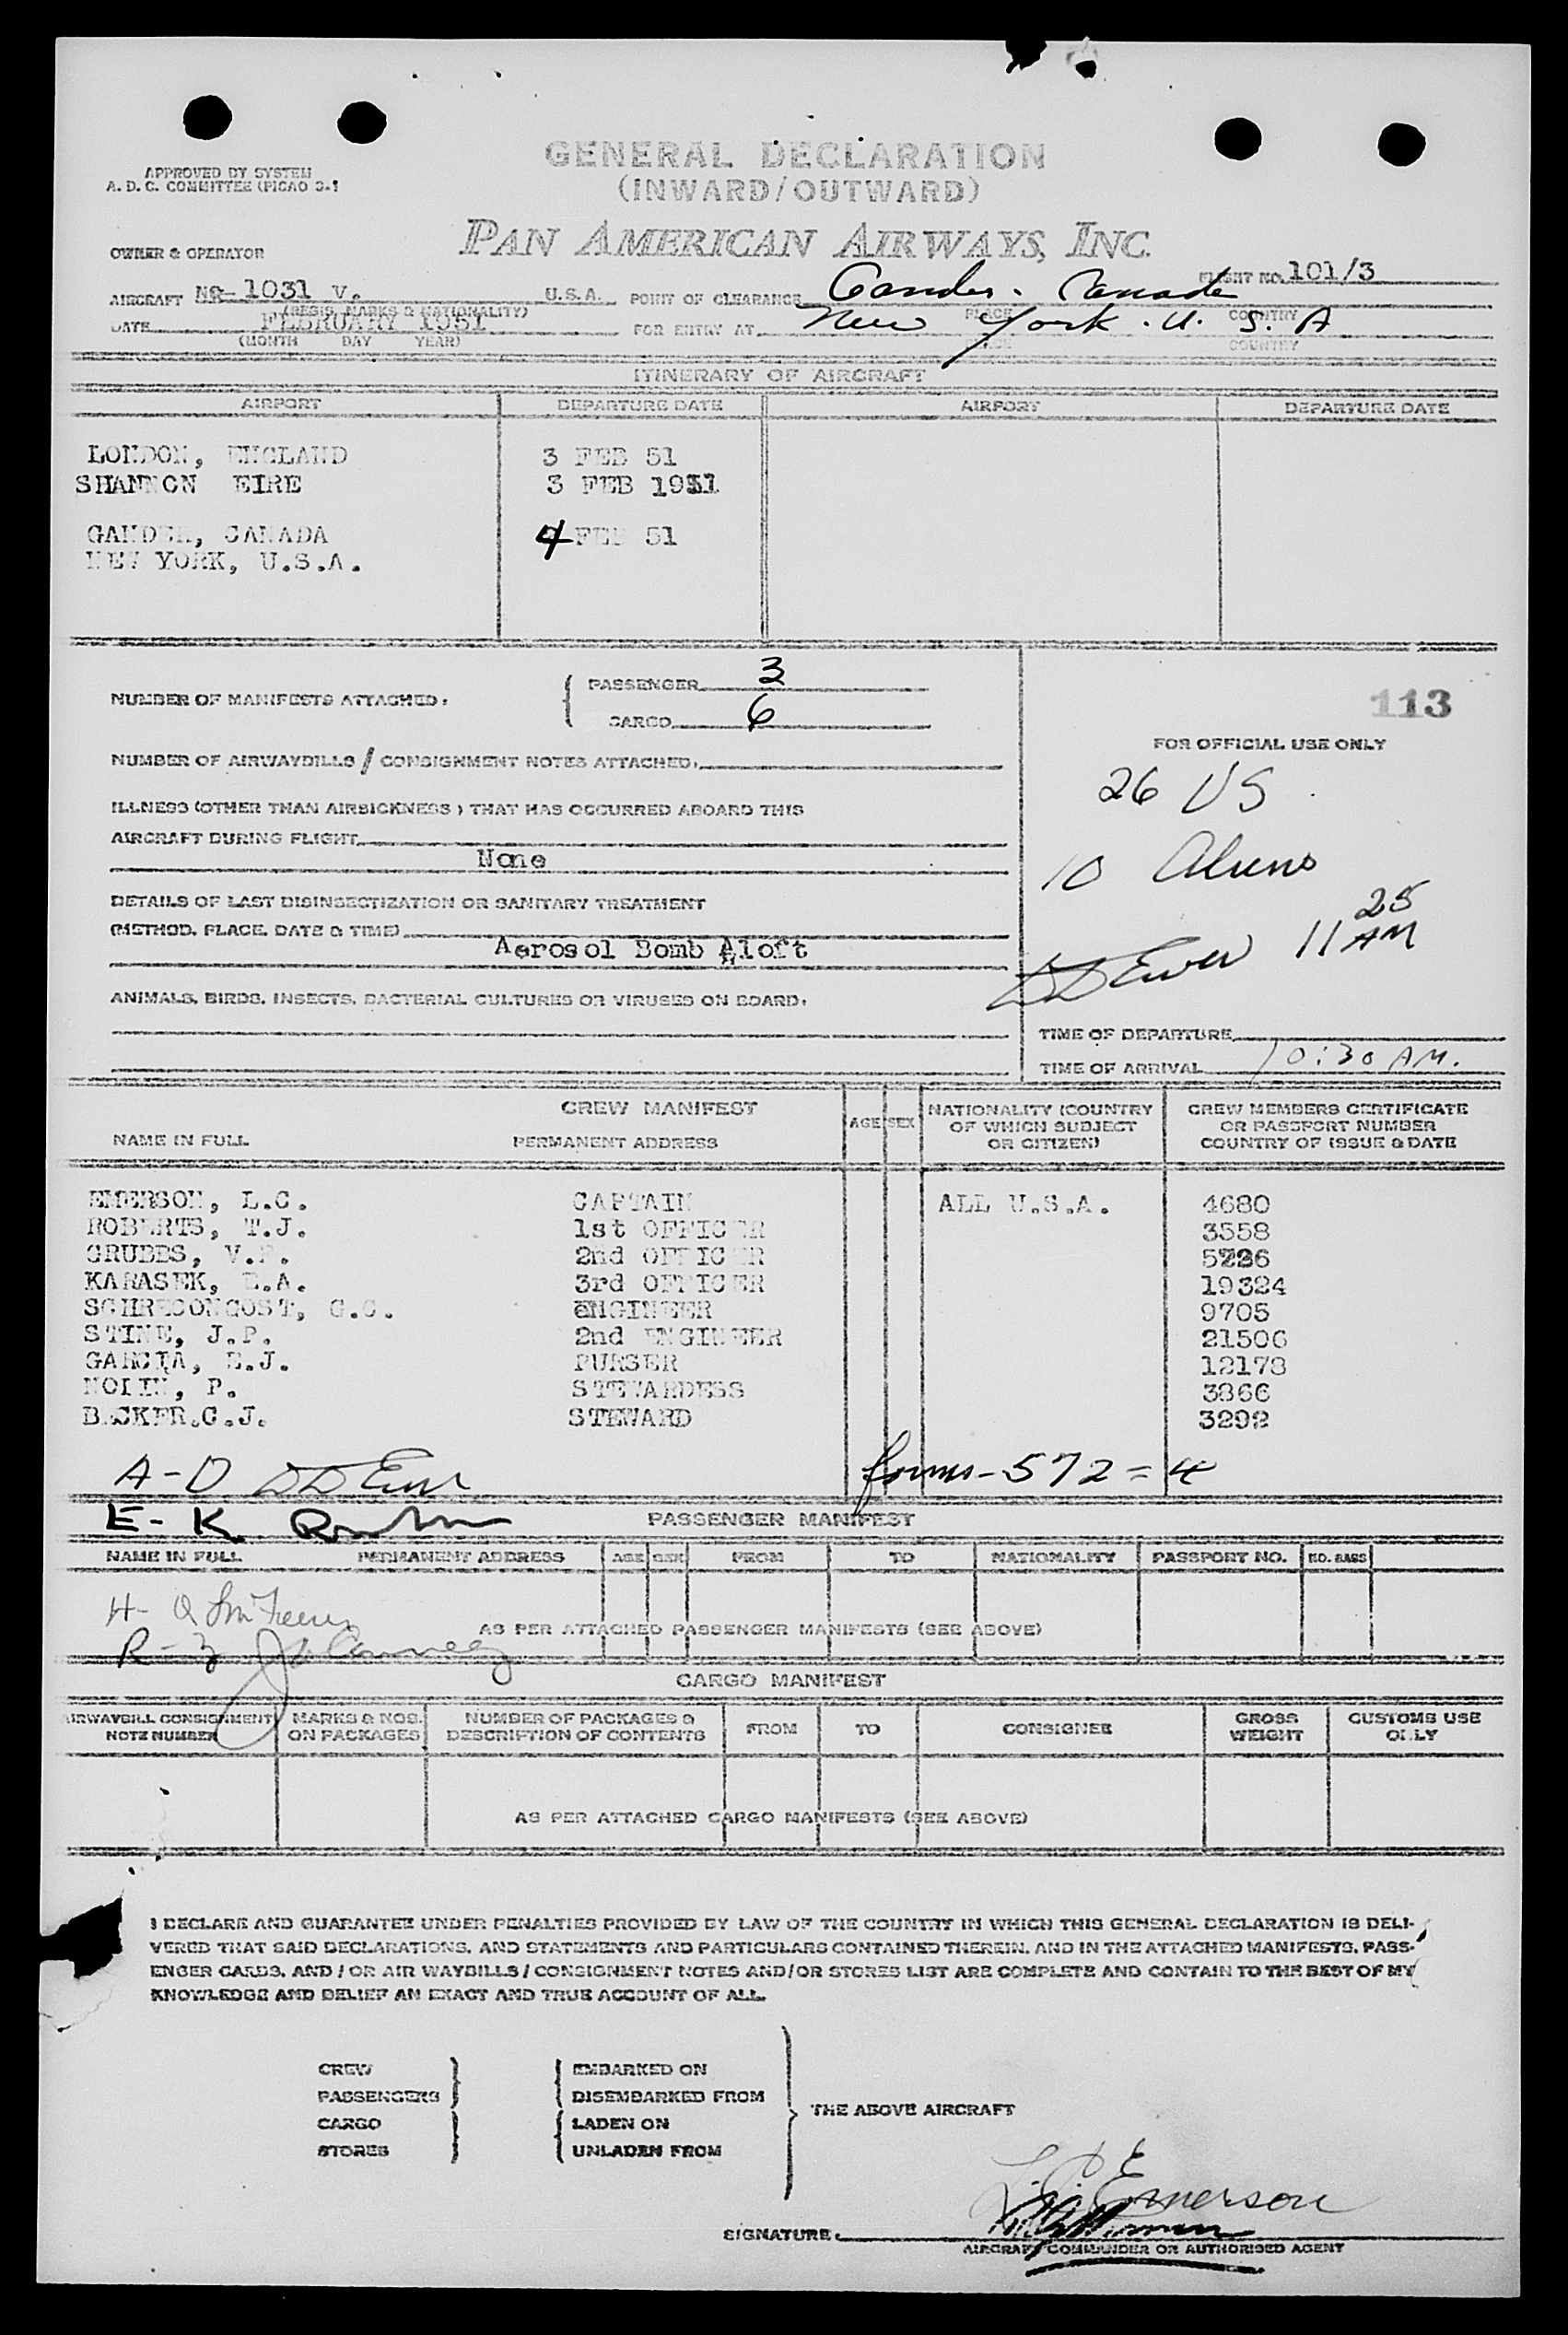 GENERAL DECLARATION
(INWARD/OUTWARD)
APPROVED BY SYSTEM
A. D. C. COMMITTEE (PICAO 3-)
PAN AMERICAN AIRWAYS, INC.
OWNER & OPERATOR
FLIGHT NO. 101/3
AIRCRAFT 1031 V. U.S.A. POINT OF CLEARANCE Gander. Canada
(REGIS. MARKS & NATIONALITY) PLACE COUNTRY
DATE FEBRUARY 1951 FOR ENTRY AT New York. U. S. A
(MONTH DAY YEAR) PLACE COUNTRY
ITINERARY OF AIRCRAFT
AIRPORT DEPARTURE DATE AIRPORT DEPARTURE DATE
LONDON, ENGLAND 3 FEB 51
SHANNON EIRE 3 FEB 1951
GANDER, CANADA 4 FEB 51
NEW YORK, U.S.A.
NUMBER OF MANIFESTS ATTACHED: PASSENGER 3
CARGO 6
113
FOR OFFICIAL USE ONLY
NUMBER OF AIRWAYBILLS / CONSIGNMENT NOTES ATTACHED:
26 US
ILLNESS (OTHER THAN AIRSICKNESS) THAT HAS OCCURRED ABOARD THIS
AIRCRAFT DURING FLIGHT
None
10 Aliens
DETAILS OF LAST DISINSECTIZATION OR SANITARY TREATMENT
(METHOD, PLACE, DATE & TIME)
Aerosol Bomb Aloft
11 25 AM
ANIMALS, BIRDS, INSECTS, BACTERIAL CULTURES OR VIRUSES ON BOARD:
TIME OF DEPARTURE
TIME OF ARRIVAL 10:30 AM.
CREW MANIFEST
NAME IN FULL PERMANENT ADDRESS AGE SEX NATIONALITY (COUNTRY OF WHICH SUBJECT OR CITIZEN) CREW MEMBERS CERTIFICATE OR PASSPORT NUMBER COUNTRY OF ISSUE & DATE
EMERSON, L.C. CAPTAIN ALL U.S.A. 4680
ROBERTS, T.J. 1st OFFICER 3558
GRUBBS, V. 2nd OFFICER
KARASEK, .A. 3rd OFFICER 19324
SCHRECONGOST, G.C. ENGINEER 9705
STINE, J.P. 2nd ENGINEER 21506
GARCIA, E.J. PURSER 12178
NOLIN, P. STEWARDESS 3866
BECKER.G.J. STEWARD 3292
A-D forms-572=4
E-K
PASSENGER MANIFEST
NAME IN FULL PERMANENT ADDRESS AGE SEX FROM TO NATIONALITY PASSPORT NO. NO. BAGS
H-Q
AS PER ATTACHED PASSENGER MANIFESTS (SEE ABOVE)
R-Z
CARGO MANIFEST
AIRWAYBILL CONSIGNMENT NOTE NUMBER MARKS & NOS. ON PACKAGES NUMBER OF PACKAGES & DESCRIPTION OF CONTENTS FROM TO CONSIGNEE GROSS WEIGHT CUSTOMS USE ONLY
AS PER ATTACHED CARGO MANIFESTS (SEE ABOVE)
I DECLARE AND GUARANTEE UNDER PENALTIES PROVIDED BY LAW OF THE COUNTRY IN WHICH THIS GENERAL DECLARATION IS DELI-
VERED THAT SAID DECLARATIONS, AND STATEMENTS AND PARTICULARS CONTAINED THEREIN, AND IN THE ATTACHED MANIFESTS, PASS-
ENGER CARDS, AND / OR AIR WAYBILLS / CONSIGNMENT NOTES AND/OR STORES LIST ARE COMPLETE AND CONTAIN TO THE BEST OF MY
KNOWLEDGE AND BELIEF AN EXACT AND TRUE ACCOUNT OF ALL.
CREW EMBARKED ON
PASSENGERS DISEMBARKED FROM
THE ABOVE AIRCRAFT
CARGO LADEN ON
STORES UNLADEN FROM
L. C. Emerson
SIGNATURE:
AIRCRAFT COMMANDER OR AUTHORISED AGENT